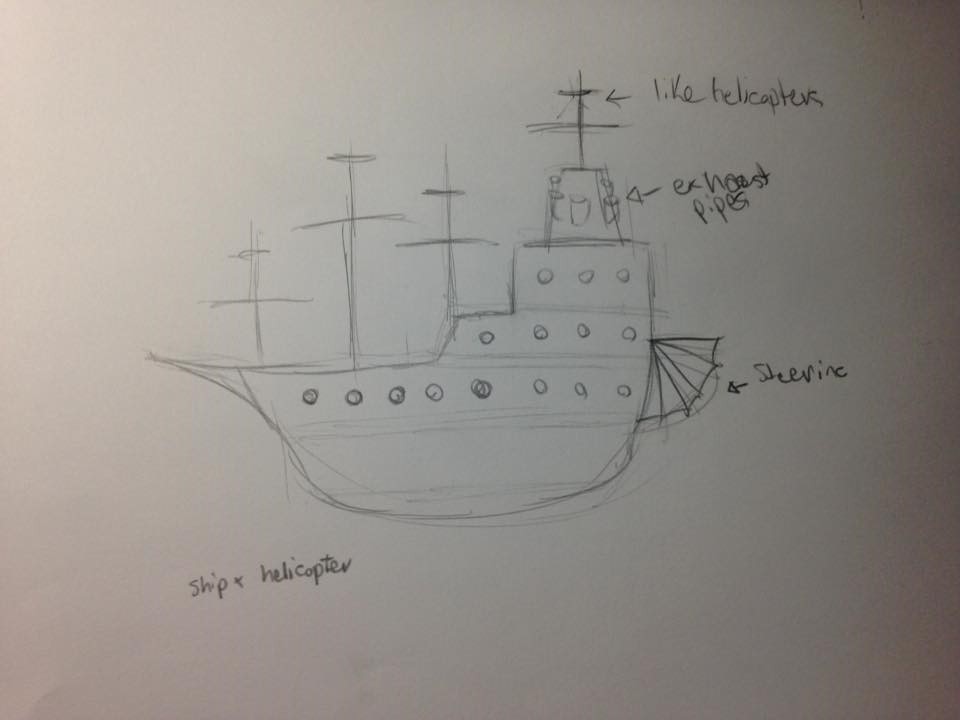 like helicopters
exhaust
pipes
steering
ship x helicopter